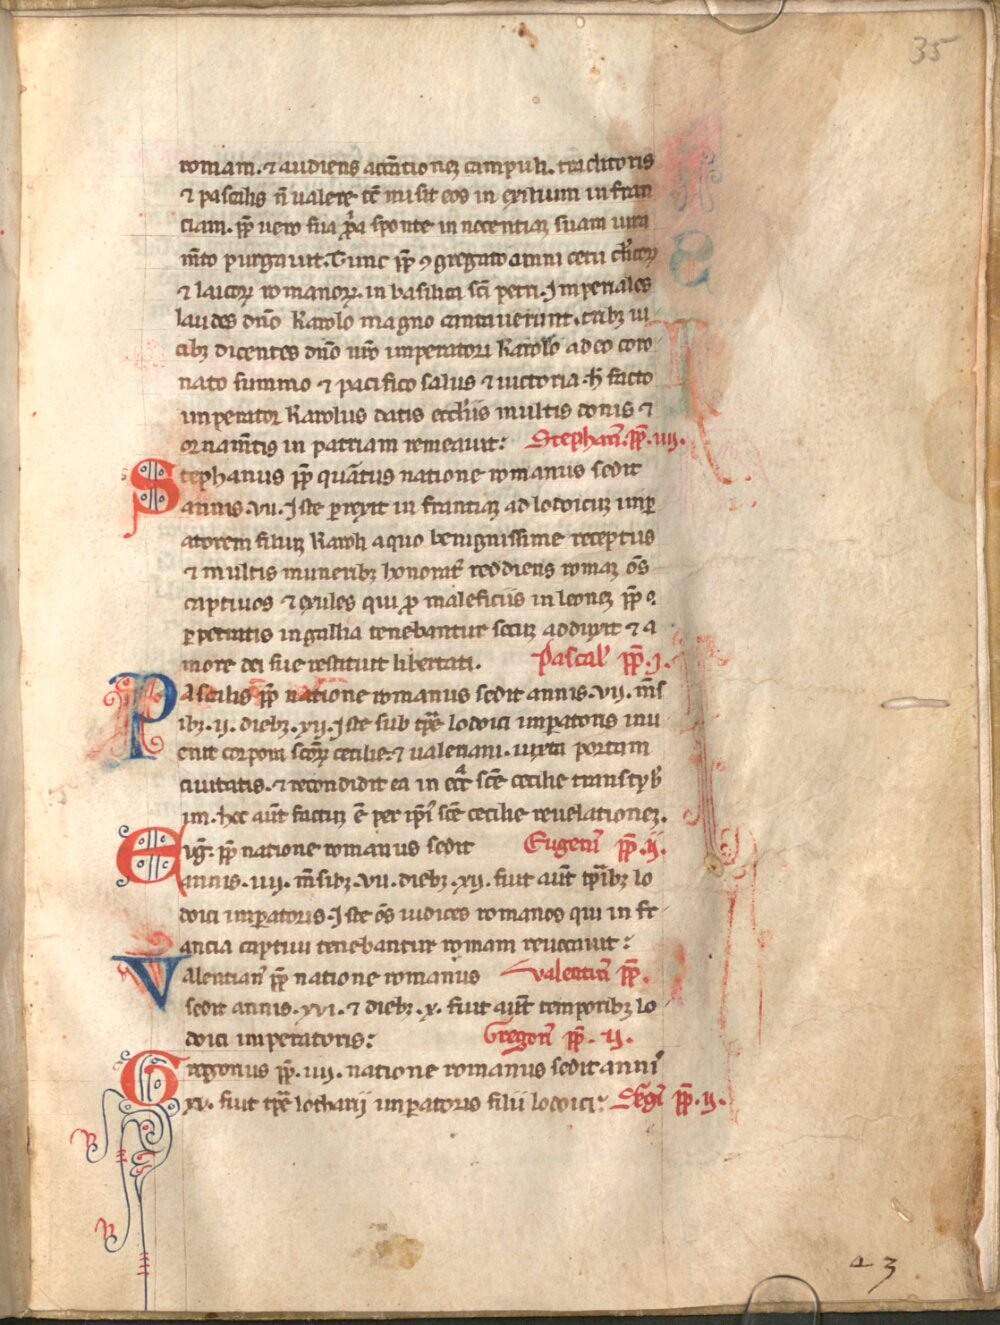 35
romam. ⁊ audiens accu̅tionez campuli. traditoris
⁊ pascalis n̅ valere t̅c misit eos in exilium in fran
ciam. pp̅ uero sua pp̅a sponte in nocentiaz suam iura
m̅to purgauit. Tunc pp̅ ꝯgregato omni cetu cl̅icoꝝ
⁊ laicoꝝ romanoꝝ. in basilica sc̅i petri. Imperiales
laudes dn̅o Karolo magno cantauerunt. tribꝫ ui
cibꝫ dicentes dn̅o nr̅o imperatori Karolo a deo coro
nato summo ⁊ pacifico salus ⁊ uictoria. h̅ facto
imperator Karolus datis eccl̅iis multis donis ⁊
ornam̅tis in patriam remeauit: Stephan̅. pp̅. iiii.
Stephanus pp̅ qua̅tus natione romanus sedit
annis. vii. Iste ꝑrexit in franciaz ad lodoicuz imꝑ
atorem filiuz Karoli a quo benignissime receptus
⁊ multis muneribꝫ honorat᷒ rediens romaz o̅s
captiuos ⁊ exules qui ꝓ maleficiis in leonez pp̅
ꝑpetratis in gallia tenebantur secuz addixit ⁊ a
more dei sue restituit libertati. Pascal᷒ pp̅. I.
Pascalis pp̅ natione romanus sedit annis. vii. m̅s
ibꝫ. ii. diebꝫ. xvii. Iste sub tp̅e lodoici imꝑatoris inu
enit corpora sc̅oꝝ cecilie. ⁊ ualeriani. iuxta portam
ciuitatis. ⁊ recondidit ea in ecc̅a sc̅e cecilie transtyb̅
im. hec au̅t factuz e̅ per ip̅i᷒ sc̅e cecilie reuelationez.
Eug̅. pp̅ natione romanus sedit Eugeni᷒ pp̅. ii.
annis. iiii. m̅sibꝫ. vii. diebꝫ. xii. fuit au̅t tp̅ribꝫ lo
doici imꝑatoris. Iste o̅s iudices romanos qui in fr
ancia captiui tenebantur romam reuocauit:
Valentian᷒ pp̅ natione romanus Valentin᷒ pp̅.
sedit annis. xvi. ⁊ diebꝫ. x. fuit au̅t temporibꝫ lo
doici imperatoris: Gregori᷒ pp̅. ii.
Gregorius pp̅. iiii. natione romanus sedit anni᷒
xv. fuit tp̅e lotharii imꝑatoris filii lodoici: pp̅. ii.
a 3